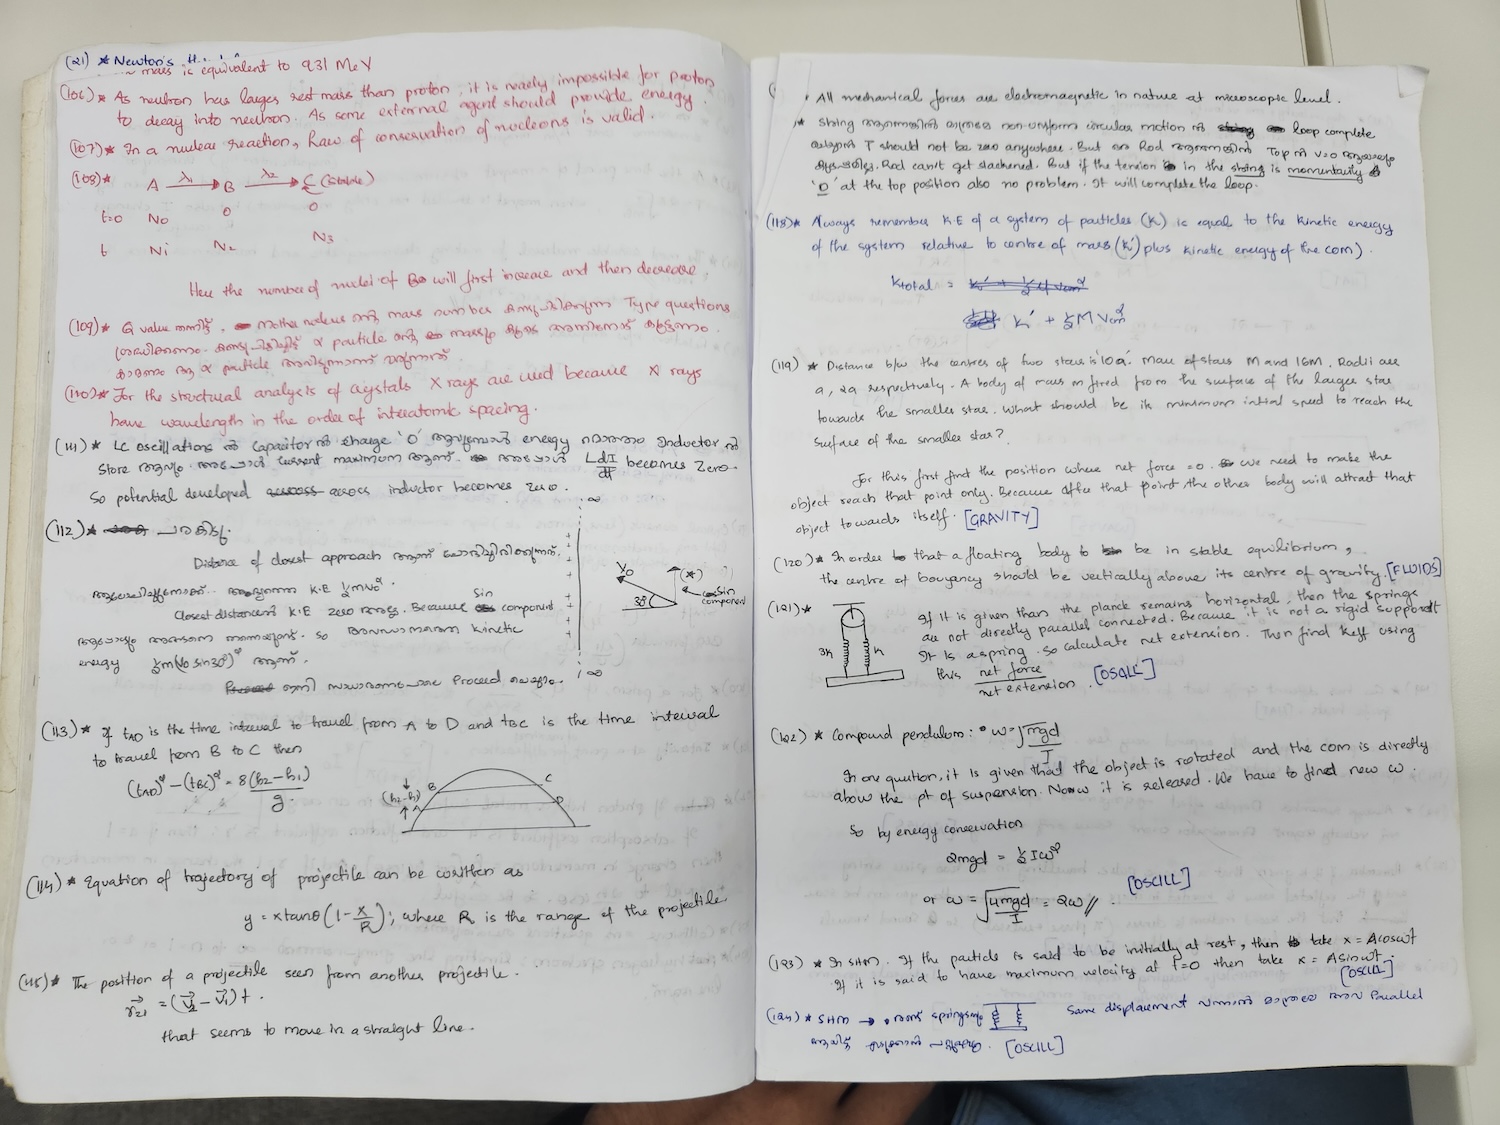 (21) * Newton's
mass is equivalent to 931 MeV
(106) * As neutron has larger rest mass than proton, it is nearly impossible for proton
to decay into neutron. As some external agent should provide energy.
(107) * In a nuclear reaction, Law of conservation of nucleons is valid.
(108) * A λ₁→ B λ₂→ C (Stable)
t=0 N₀ 0 0
t N₁ N₂ N₃
Here the number of nuclei of B will first increase and then decrease.
(109) * Q value തന്നിട്ട്, mother nucleus ന്റെ mass number കണ്ടുപിടിക്കുന്ന Type questions
ശ്രദ്ധിക്കണം. കണ്ടുപിടിച്ചിട്ട് α particle ന്റെ mass
α particle
(110) * For the structural analysis of crystals X rays are used because X rays
have wavelength in the order of interatomic spacing.
(111) * LC oscillations ൽ Capacitor ൽ charge '0' ആവുമ്പോൾ energy മൊത്തം Inductor ൽ
Store ആവും. അപ്പോൾ current maximum ആണ്. അപ്പോൾ LdI/dt becomes Zero.
So potential developed across inductor becomes zero.
(112) *
Distance of closest approach ആണ് ചോദിച്ചിരിക്കുന്നത്.
K.E ½mv².
Closest distance ൽ K.E zero അല്ല. Because sin component
So kinetic
energy ½m(v₀ sin30°)² ആണ്.
ഇനി സാധാരണപോലെ Proceed ചെയ്യാം.
∞
V₀
30°
(*)
Sin component
∞
(113) * If tAD is the time interval to travel from A to D and tBC is the time interval
to travel from B to C then
(tAD)² − (tBC)² = 8(h₂−h₁)/g.
(h₂−h₁) A B C D
(114) * Equation of trajectory of projectile can be written as
y = x tanθ (1 − x/R); where R is the range of the projectile
(115) * The position of a projectile seen from another projectile.
r⃗₂₁ = (v⃗₂ − v⃗₁) t.
that seems to move in a straight line.
All mechanical forces are electromagnetic in nature at microscopic level.
* String ആണെങ്കിൽ മാത്രമേ non-uniform circular motion ൽ loop complete
T should not be zero anywhere. But Rod ആണെങ്കിൽ Top ൽ v=0
Rod can't get slackened. But if the tension in the string is momentarily
'0' at the top position also no problem. It will complete the loop.
(118) * Always remember K.E of a system of particles (K) is equal to the kinetic energy
of the system relative to centre of mass (K') plus kinetic energy of the com).
Ktotal =
K' + ½ M Vcm²
(119) * Distance b/w the centres of two stars is '10a'. Mass of stars M and 16M. Radii are
a, 2a respectively. A body of mass m fired from the surface of the larger star
towards the smaller star. What should be its minimum intial speed to reach the
surface of the smaller star?
For this first find the position where net force = 0. We need to make the
object reach that point only. Because after that point, the other body will attract that
object towards itself. [GRAVITY]
(120) * In order that a floating body to be in stable equilibrium,
the centre of bouyancy should be vertically above its centre of gravity. [FLUIDS]
(121) * If it is given than the planck remains horizontal, then the springs
are not directly parallel connected. Because it is not a rigid support
It is a spring. So calculate net extension. Then find keff using
this net force/net extension. [OSCILL]
3k k
(122) * Compound pendulum: ω = √mgd/I
In one qustion, it is given that the object is rotated and the com is directly
above the pt of suspension. Now it is released. We have to find new ω.
So by energy conservation
2mgd = ½ Iω²
or ω = √4mgd/I = 2ω // . [OSCILL]
(123) * In SHM. If the particle is said to be initially at rest, then take x = Acosωt
If it is said to have maximum velocity at t=0 then take x = Asinωt.
[OSCILL]
(124) * SHM → രണ്ട് springs Same displacement വന്നാൽ മാത്രമേ അവ Parallel
ആയിട്ട് [OSCILL]